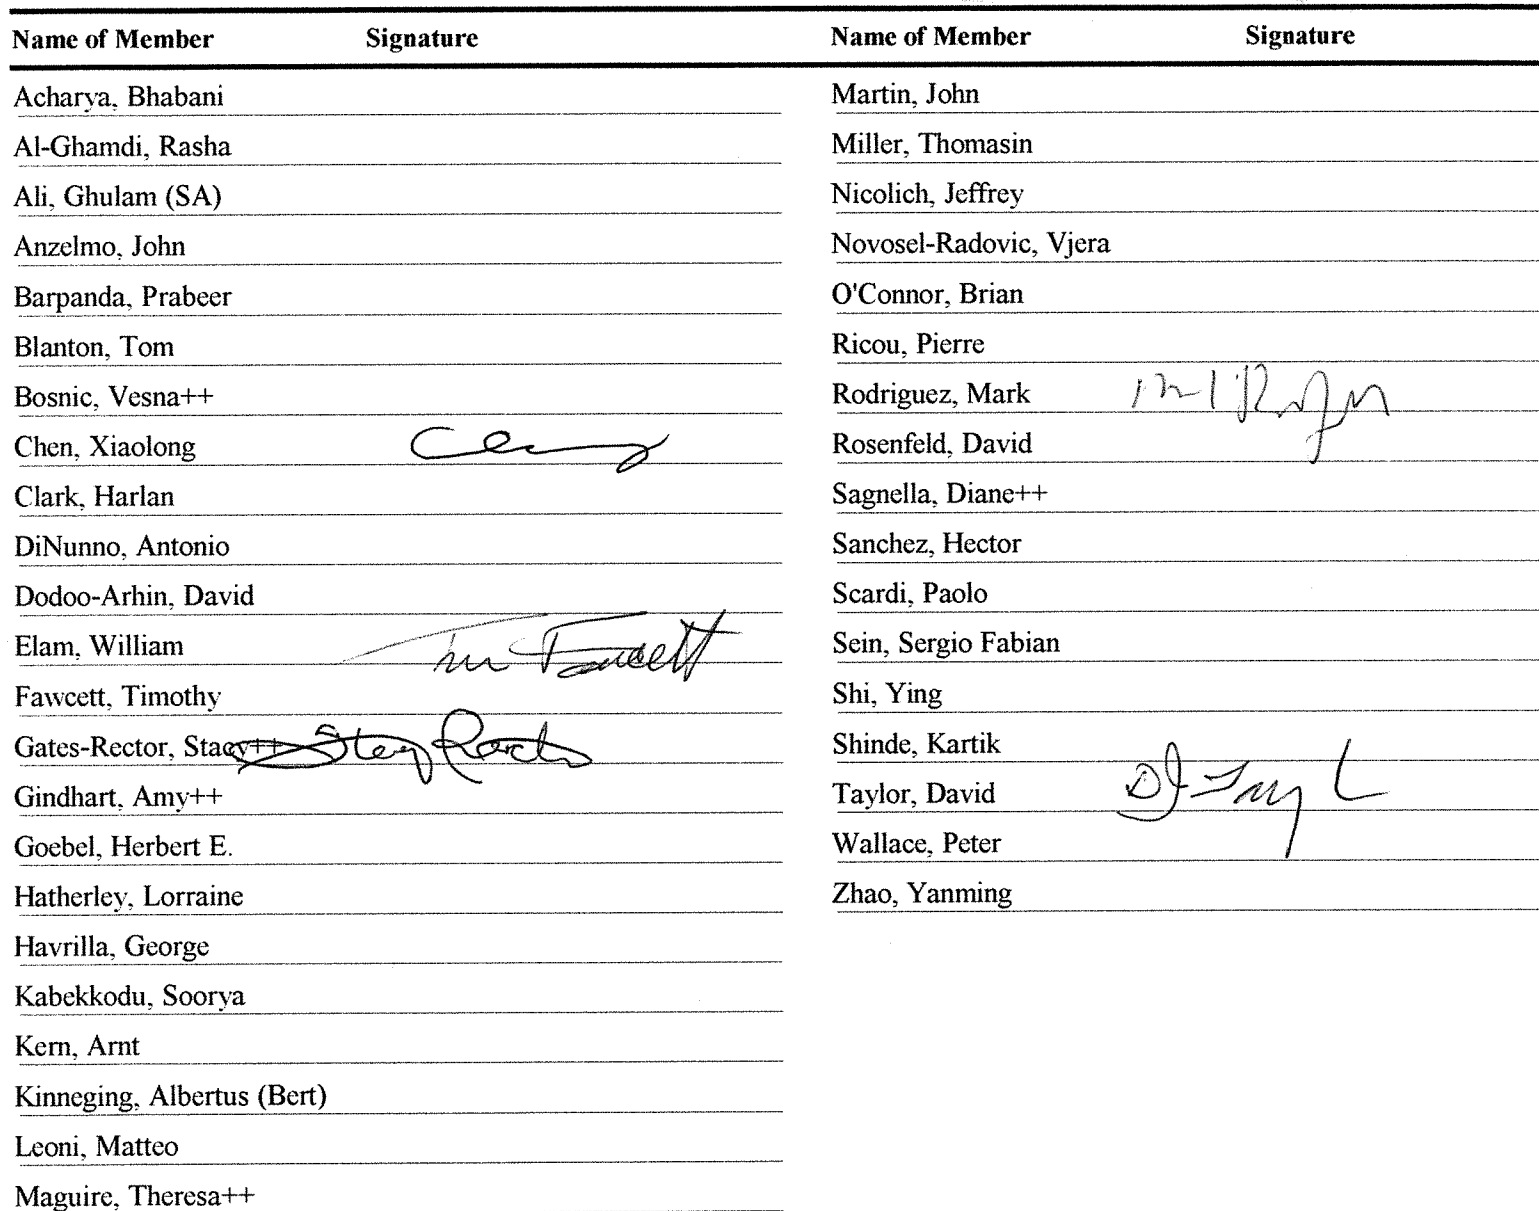 Name of Member Signature
Acharya, Bhabani
Al-Ghamdi, Rasha
Ali, Ghulam (SA)
Anzelmo, John
Barpanda, Prabeer
Blanton, Tom
Bosnic, Vesna++
Chen, Xiaolong
Clark, Harlan
DiNunno, Antonio
Dodoo-Arhin, David
Elam, William
Tim Fawcett
Fawcett, Timothy
Gates-Rector, Stacy++ Stacy Rector
Gindhart, Amy++
Goebel, Herbert E.
Hatherley, Lorraine
Havrilla, George
Kabekkodu, Soorya
Kern, Arnt
Kinneging, Albertus (Bert)
Leoni, Matteo
Maguire, Theresa++
Name of Member Signature
Martin, John
Miller, Thomasin
Nicolich, Jeffrey
Novosel-Radovic, Vjera
O'Connor, Brian
Ricou, Pierre
Rodriguez, Mark
Rosenfeld, David
Sagnella, Diane++
Sanchez, Hector
Scardi, Paolo
Sein, Sergio Fabian
Shi, Ying
Shinde, Kartik
Taylor, David
Wallace, Peter
Zhao, Yanming